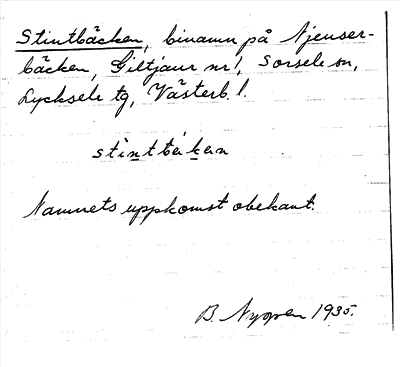 Stintbäcken, binamn på Njeuser-
bäcken, Giltjaur nr 1, Sorsele sn,
Lycksele tg, Västerb. l.
stintbäkan
Namnets uppkomst obekant.
B. Nygren 1935.